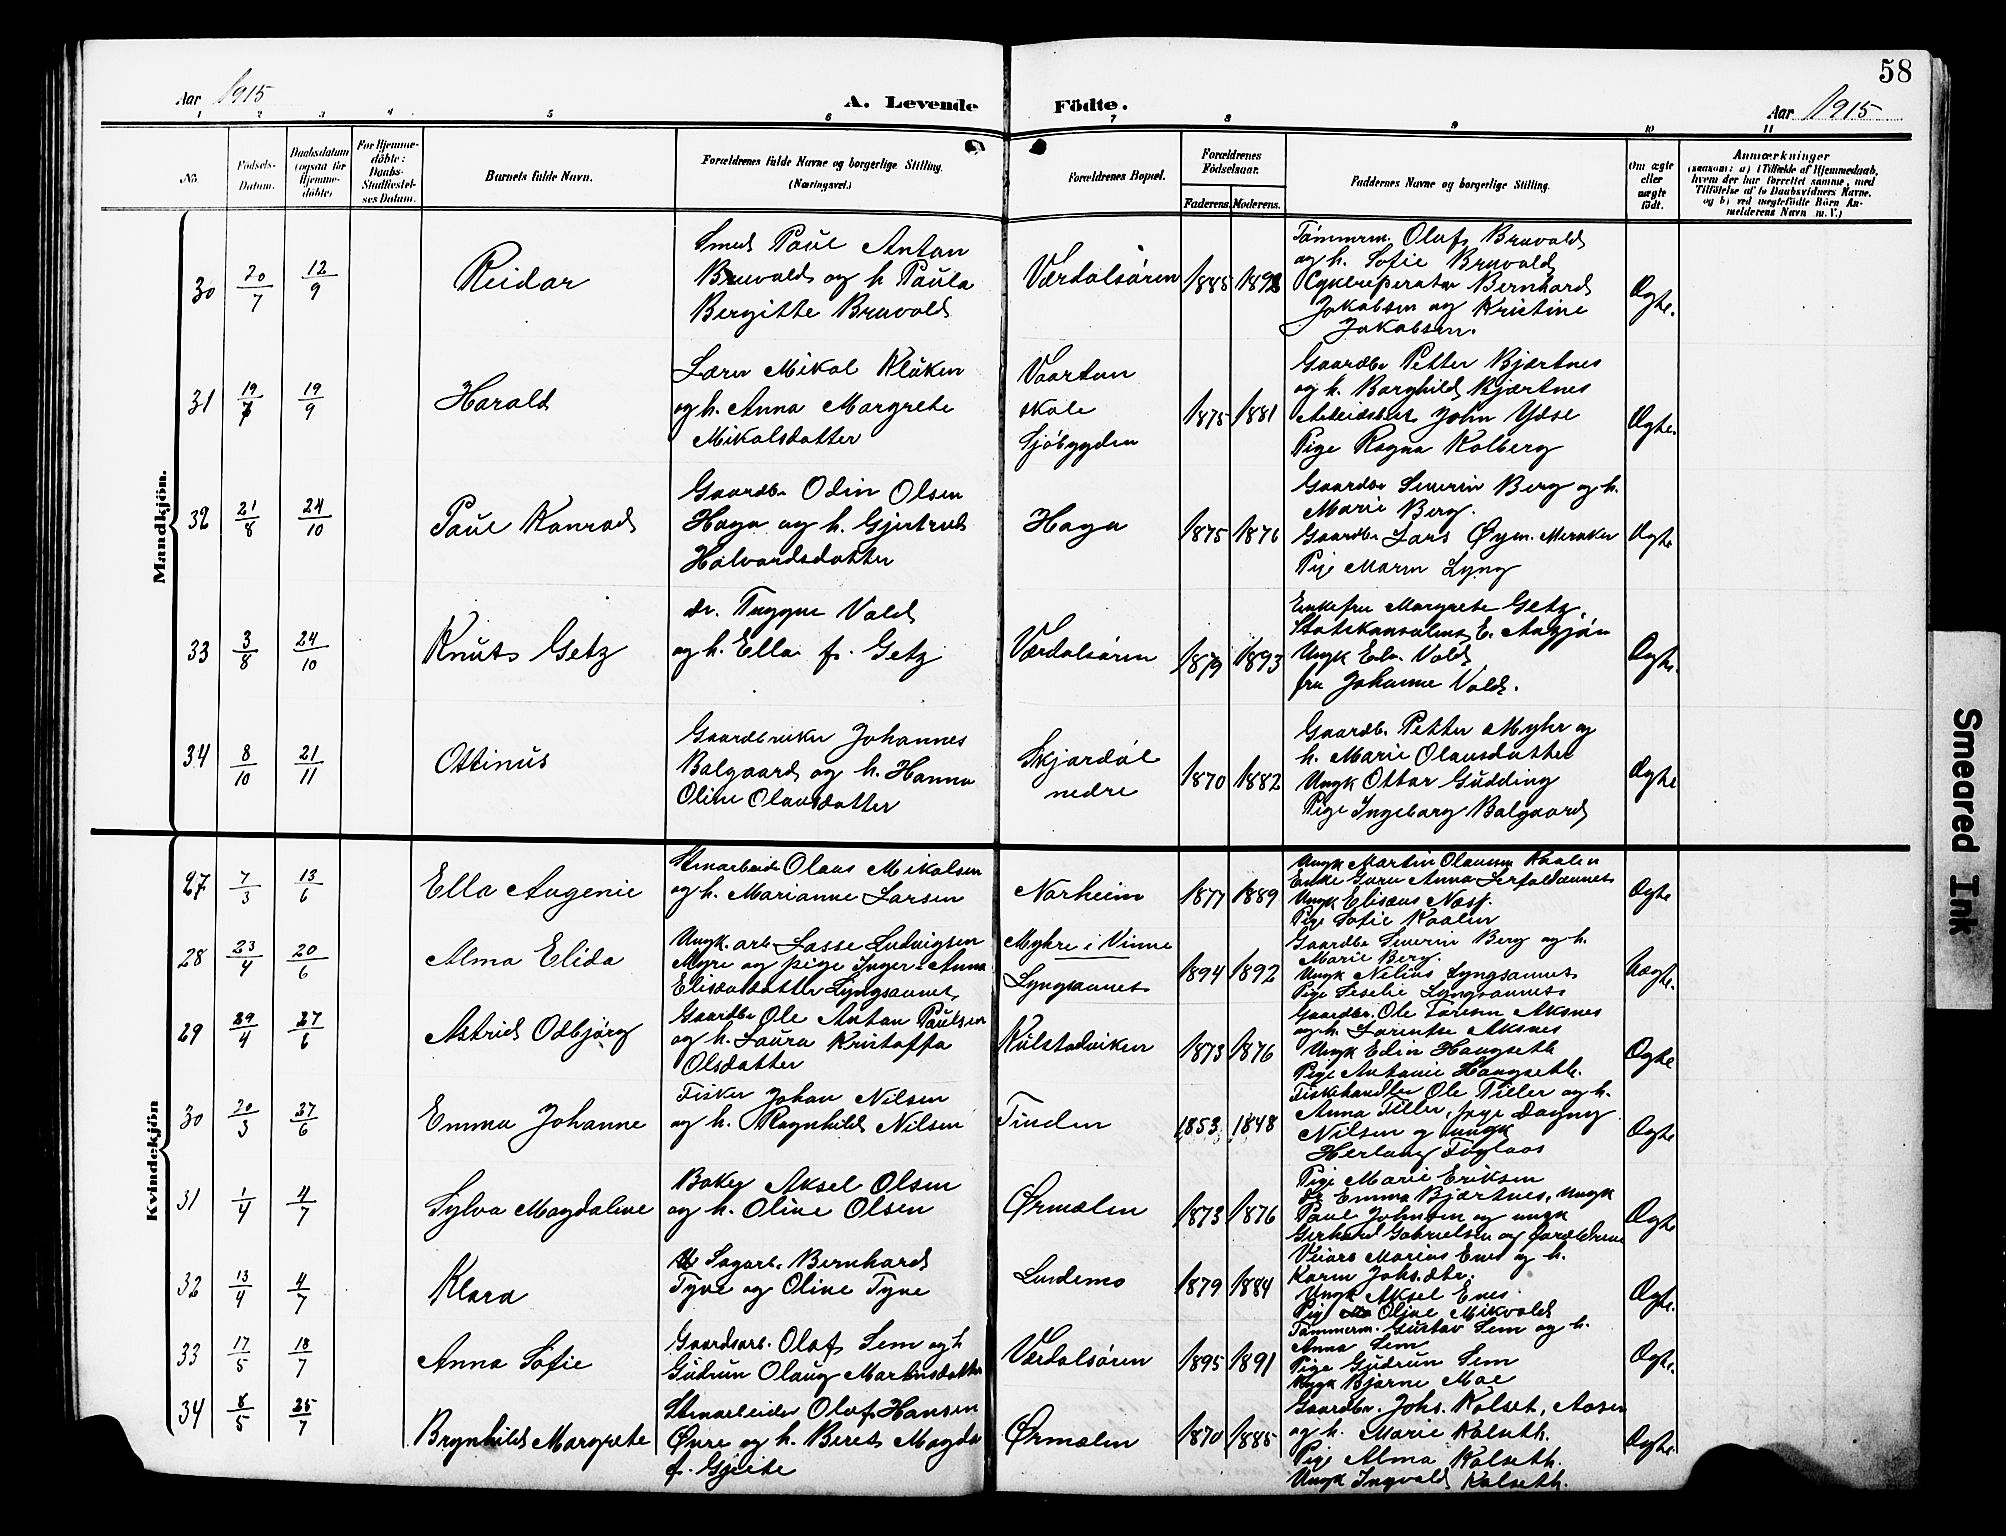 58
Aar 1915
A. Levende Födte.
Aar 1915
1 2 3 4 5 6 7 8 9 10 11
No.
Födsels-Datum.
Daabsdatum (ogsaa for Hjemme-döbte)
For Hjemme-döbte: Daabs-Stadfæstel-ses Datum.
Barnets fulde Navn.
Forældrenes fulde Navne og borgerlige Stilling. (Næringsvei.)
Forældrenes Bopæl.
Forældrenes Födselsaar.
Faderens. Moderens.
Faddernes Navne og borgerlige Stilling.
Om ægte eller uægte födt.
Anmærkninger
(saasom: a) i Tilfælde af Hjemmedaab,
hvem der har forrettet samme, med
Tilföielse af to Daabsvidners Navne,
og b) ved uægtefödte Börn An-
melderens Navn m. V.)
Mandkjön.
30 20/7 12/9 Reidar
Smed Paul Antan
Bruvold og h Paula
Bergitte Bruvold
Værdalsøren 1885 1892
Tømmerm. Olaf Bruvold
og h. Sofie Bruvold
Cykkelreperatør Bernhard
Jakobsen og Kristine
Jakobsen.
Ægte.
31 19/7 19/9 Harald
Lærer Mikal Kluken
og h. Anna Margrete
Mikalsdatter
Vaartun
skole
Sjøbygden
1875 1881
Gaardbr Petter Bjærtnes
og h. Borghild Bjærtnes
Arbeidsbest John Ydse
Pige Ragna Kolberg
Ægte.
32 21/8 24/10 Paul Konrad
Gaardbr Odin Olsen
Haga og h. Gjertrud
Halvardsdatter
Haga 1875 1876
Gaardbr Severin Berg og h.
Marie Berg.
Gaardbr Lars Øym. Meraker
Pige Maren Lyng
Ægte
33 3/8 24/10 Knut Getz
dr. Tryggve Vold
og h. Ella f. Getz
Værdalsøren 1879 1893
Enkefru Margrete Getz.
Statskonsulent E.
Ungk Vold
fru Johanne Vold.
Ægte.
34 8/10 21/11 Ottinus
Gaardbruker Johannes
Balgaard og h. Hanna
Oline Olausdatter
Skjørdøl
nedre
1870 1882
Gaardb. Petter Myhr og
h. Marie Olausdatter
Ungk Ottar Gudding
Pige Ingeborg Balgaard
Ægte
Kvindekjön
27 7/3 13/6 Ella Augenie
Stenarbeider Olaus Mikalsen
og h. Marianne Larsen
Norheim 1877 1889
Ungk Martin Olaussen Kaalen
Enke Guru Anna Leirfaldaunet
Ungk Elisæus Næss.
Pige Sofie Kaalen
Ægte
28 23/4 20/6 Alma Elida
Ungk. arb Lasse Ludvigsen
Myre og pige Inger Anna
Elisædatter Lyngsaunet
Myhre i Vinne
Lyngsaunet
1894 1892
Gaardbr Severin Berg og h.
Marie Berg.
Ungk Nelius Lyngsaunet
Pige Seselie Lyngsaunet
Uægte.
29 29/4 27/6 Astrid Odbjørg
Gaardbr Ole Antan Paulsen
og h. Laura Kristoffa
Olsdatter
Kulstadviken 1873 1876
Gaardbr. Ole Aksnes
og h. Lorentse Aksnes
Ungk Edin Haugseth
Pige Antonie Haugseth.
Ægte
30 20/3 27/6 Emma Johanne
Fisker Johan Nilsen
og h. Ragnhild Nilsen
Tinden 1853 1848
Fiskehandler Ole Tiller og h.
Anna Tiller, pige Dagny
Nilsen og ungk
Herlaug Fuglaas
Ægte
31 1/4 4/7 Sylva Magdalene
Baker Aksel Olsen
og h. Oline Olsen
Ørmælen 1873 1876
Pige Marie Eriksen
Emma Bjærtnes, ungk
Paul Johnsen og ungk
Gerhard Gabrielsen og foreldrene
Ægte
32 13/4 4/7 Klara
Sagarb. Bernhard
Tyve og Oline Tyve
Lindemo 1879 1884
Marius Enes og h.
Karen Johs.dtr.
Ungk Aksel Enes
Pige Oline Mikvold
Ægte.
33 17/5 18/7 Anna Sofie
Gaardsarb. Olaf Sem og h
Gudrun Olaug Martinsdatter
Værdalsøren 1895 1891
Tømmerm. Gustav Sem og h.
Anna Sem
Pige Gudrun Sem
Ungk Bjarne Moe
Ægte.
34 8/5 25/7 Brynhild Margrete
Stenarbeider Olaf Hansen
Øvre og h. Beret Magda
f. Gjeite
Ørmælen 1870 1885
Gaardbr. Johs. Kolset, Aasen
og h. Marie Kolseth.
Pige Alma Kolseth.
Ungk Ingvald Kolseth.
Ægte.
Smeared Ink